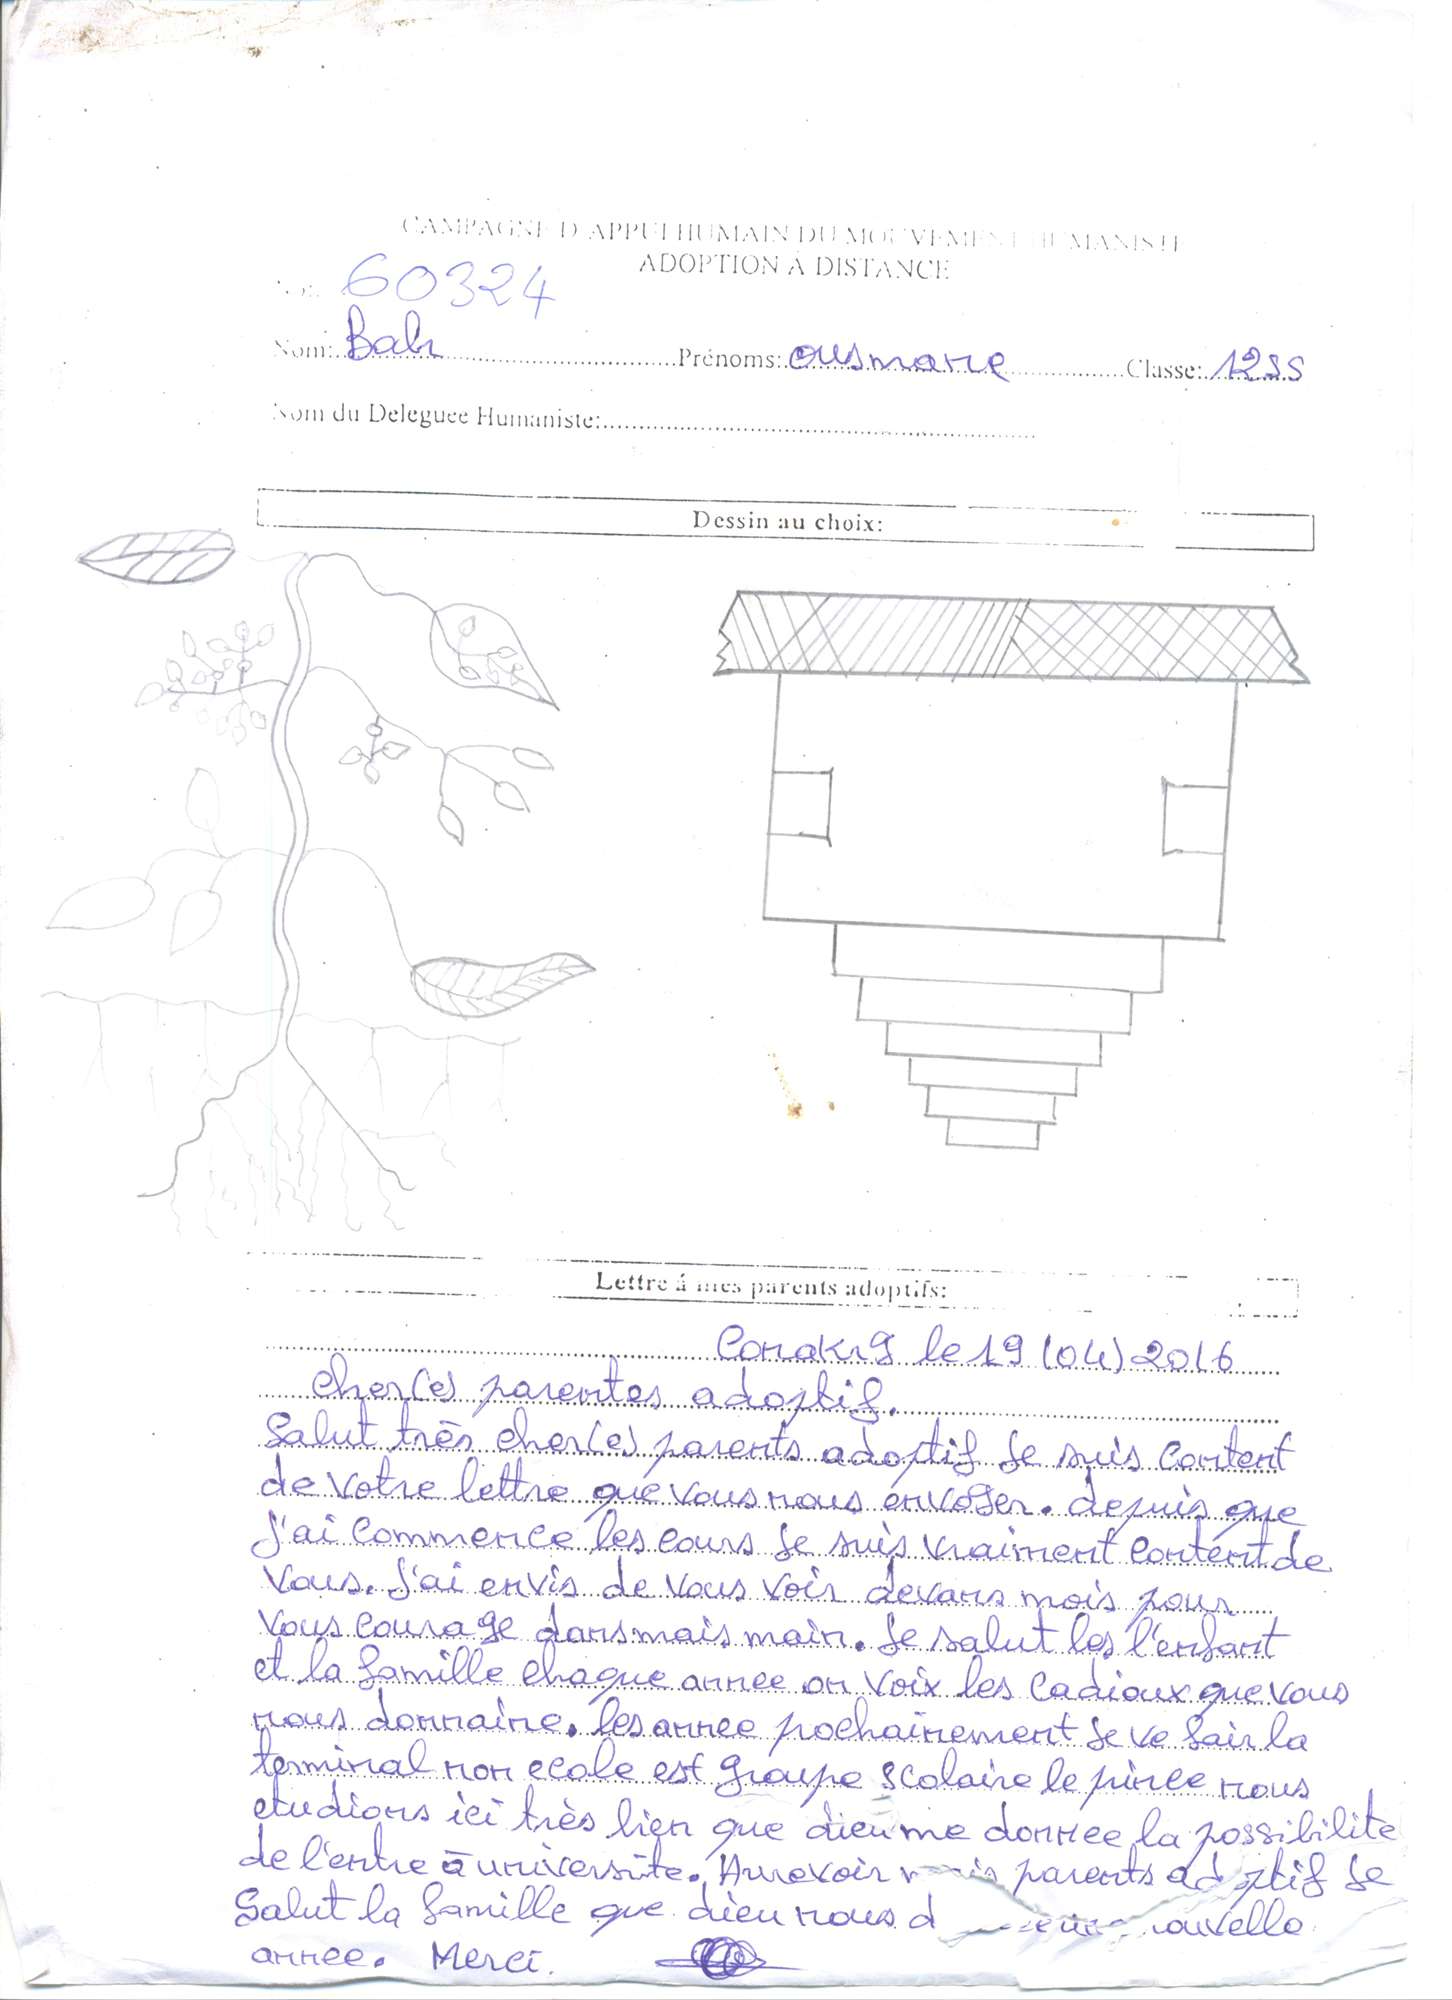 CAMPAGNE D'APPUI HUMAIN DU MOUVEMENT HUMANISTE
ADOPTION À DISTANCE
No: 60324
Nom: Bah Prénoms: ousmane Classe: 12SS
Nom du Deleguee Humaniste:
Dessin au choix:
Lettre á mes parents adoptifs:
Conakry le 19 (04) 2016
cher(e) parentes adoptif.
Salut très cher(e) parents adoptif Je suis content
de votre lettre que vous nous envoyer. depuis que
j'ai commence les cours Je suis vraiment content de
vous. J'ai envis de vous voir devans mois pour
vous courage dans mais main. Je salut les l'enfant
et la famille chaque annee on voix les cadioux que vous
nous donnaine. les annee pochainement Je ve fair la
terminal non ecole est groupe scolaire le pince nous
etudions ici très bien que dieu me donnee la possibilite
de l'entre à universite. Aurevoir parents adoptif Je
Salut la famille que dieu nous nouvelle
annee. Merci.